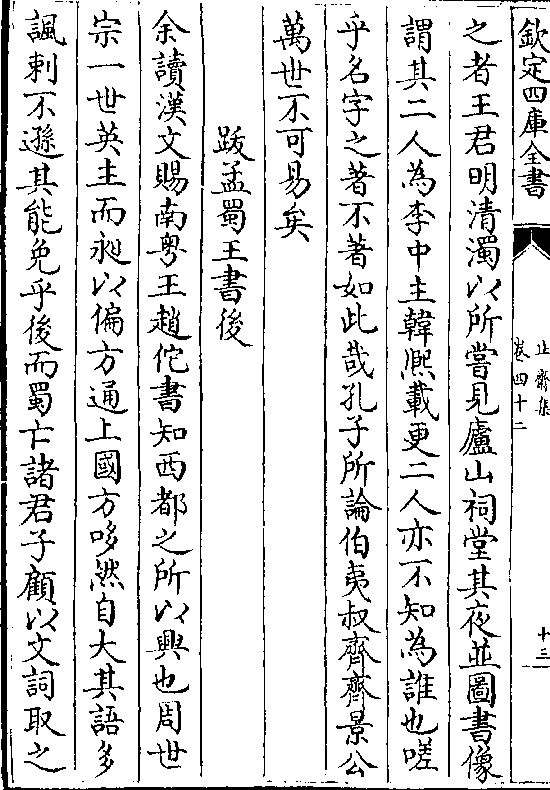 欽定四庫全書
止齋集
卷四十二
十三
之者王君明清濁以所嘗見廬山祠堂其夜並圖書像
謂其二人為李中主韓熈載更二人亦不知為誰也嗟
乎名字之著不著如此哉孔子所論伯夷叔齊齊景公
萬世不可易矣
跋孟蜀王書後
余讀漢文賜南粤王趙佗書知西都之所以興也周世
宗一世英主而昶以偏方通上國方哆然自大其語多
諷刺不遜其能免乎後而蜀亡諸君子顧以文詞取之